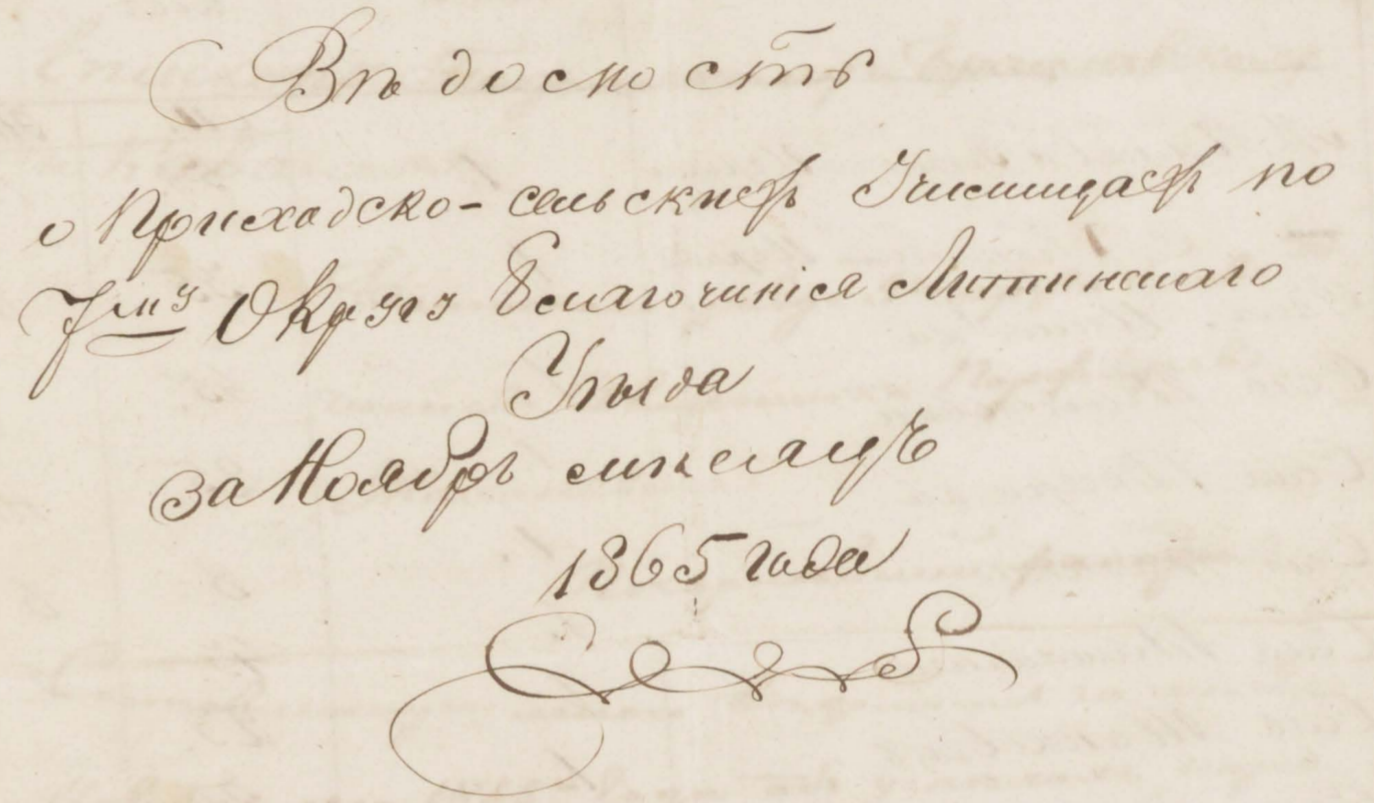 Вѣдомость
о Приходско-сельскихъ Училищахъ по
7му Округу Благочинія Литинскаго
Уѣзда
за Ноябрь мѣсяцъ
1865 года